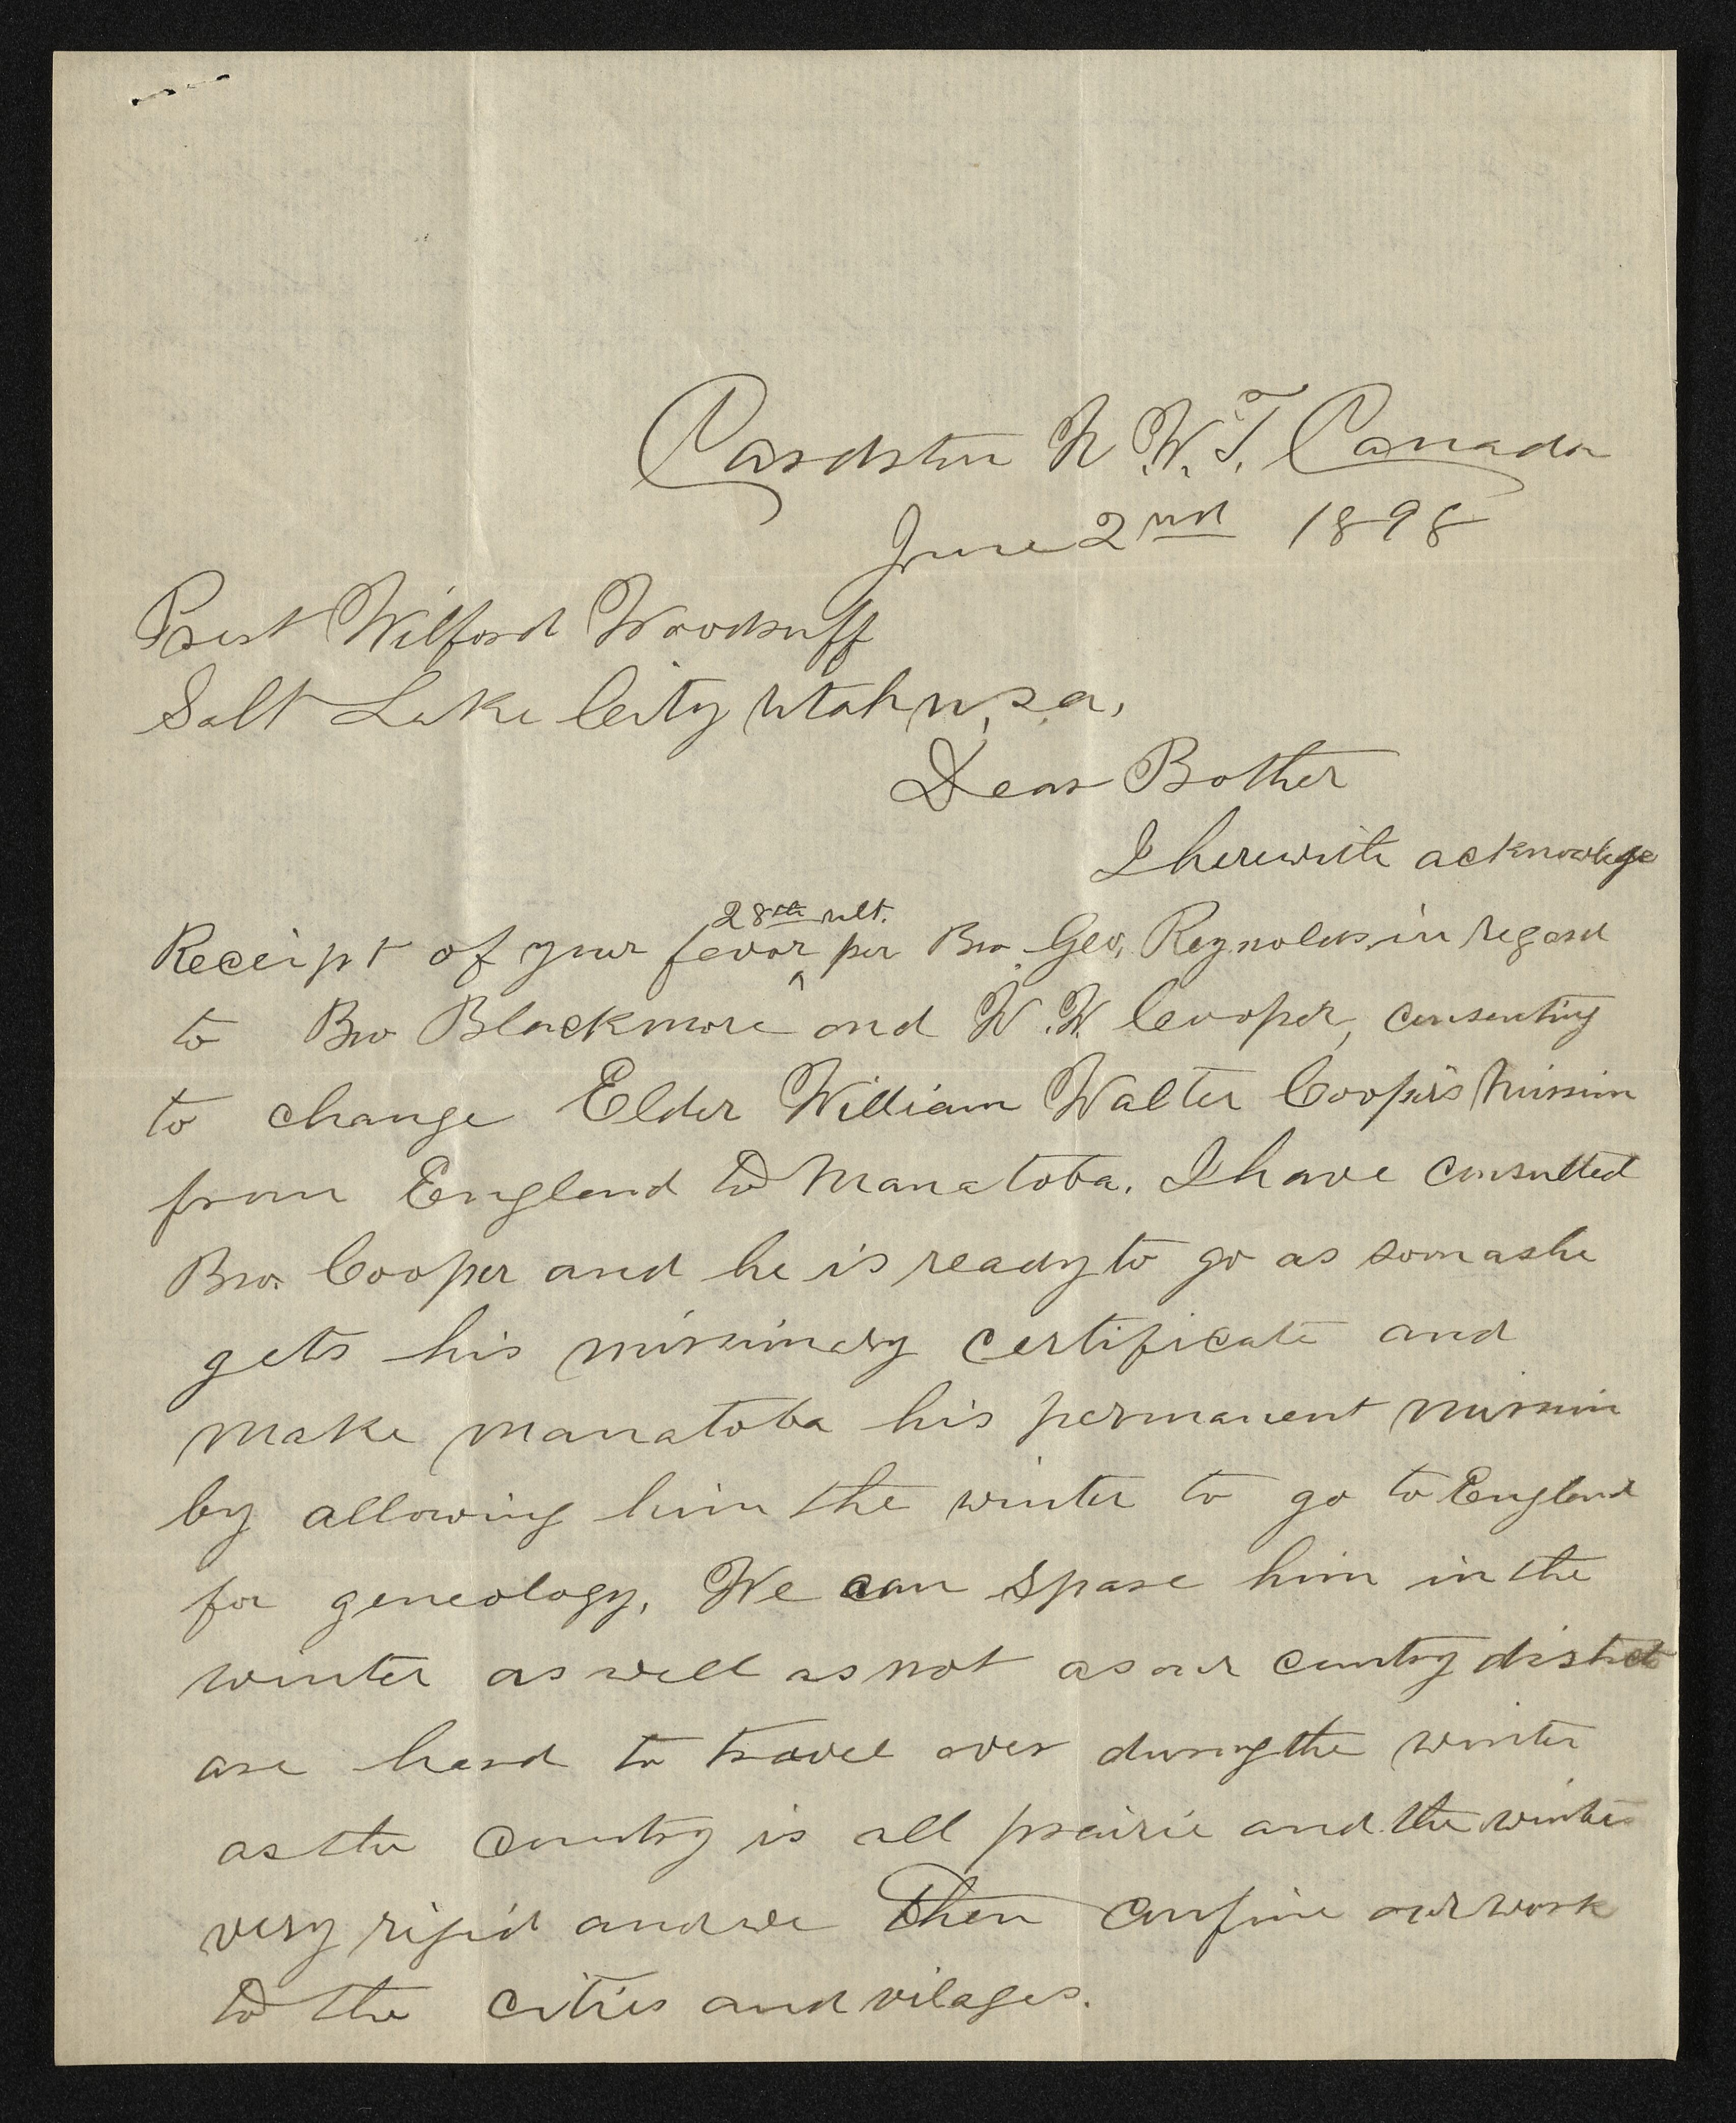 Cardston N. W. T. Canada
June 2nd 1898
Prest Wilford Woodruff
Salt Lake City Utah U. S. A.
Dear Bother
I herewith acknowlege
28th ult.
Receipt of your favor ^ per Bro. Geo. Reynolds, in regard
to Bro Blackmore and W. W. Cooper, consenting
to change Elder William Walter Cooper's Mission
from England to Manatoba. I have consulted
Bro. Cooper and he is ready to go as soon as he
gets his missionary certificate and
make Manatoba his permanent mission
by allowing him the winter to go to England
for geneology, We can spare him in the
winter as well as not as our country districts
are hard to travel over during the winter
as the country is all prairie and the winter
very rigid and we then confine our work
to the cities and vilages.